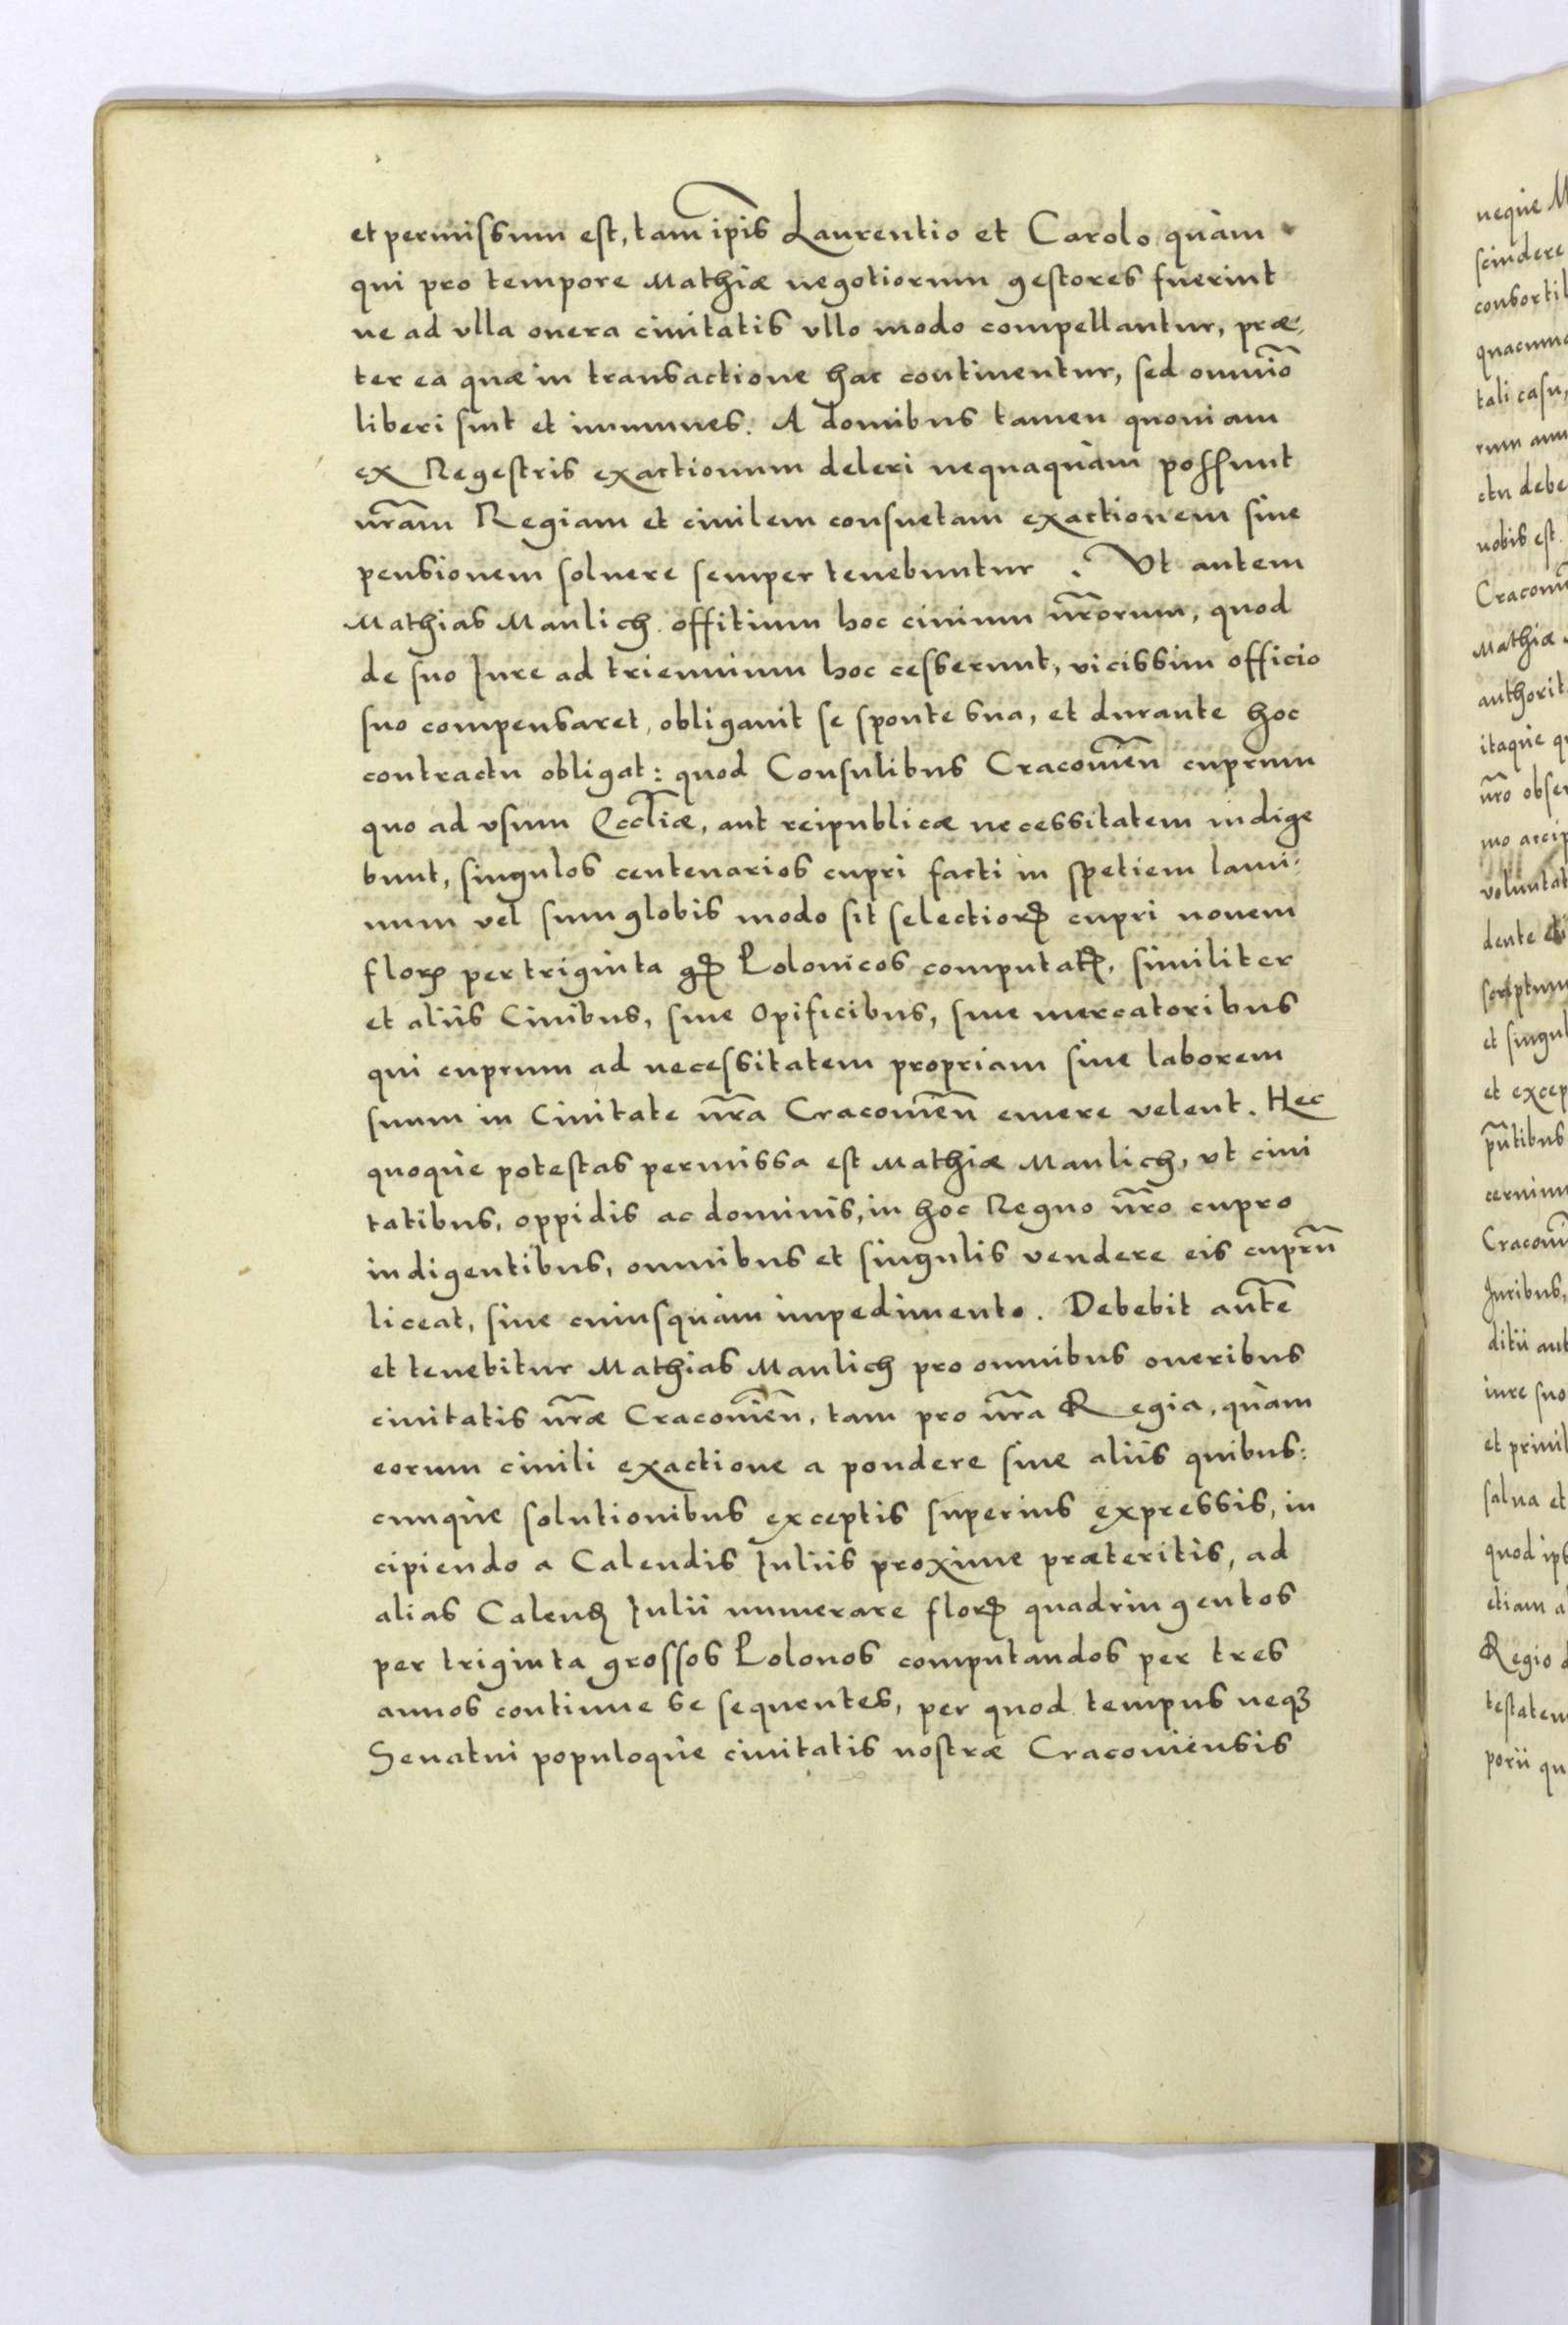 et permissum est, tam ip̃is Laurentio et Carolo quàm
qui pro tempore Mathiæ negotiorum gestores fuerint
ne ad vlla onera ciuitatis vllo modo compellantur, præ:
ter ea quæ in transactione hac continentur, sed omnĩo
liberi sint et immunes. A domibus tamen quoniam
ex Regestris exactionum deleri nequaquàm possunt
nr̃am Regiam et ciuilem consuetam exactionem siue
pensionem soluere semper tenebuntur. Vt autem
Mathias Manlich offitium hoc ciuium nr̃orum, quod
de suo Iure ad triennium hoc cesserunt, vicissim officio
suo compensaret, obligauit se sponte sua, et durante hoc
contractu obligat: quod Consulibus Cracouieñ cuprum
quo ad vsum Eccl̃iæ, aut reipublicæ necessitatem indige
bunt, singulos centenarios cupri facti in spetiem lami:
num vel sum globis modo sit selectiorꝭ cupri nouem
florꝭ per triginta gꝭ Polonicos computatꝭ, similiter
et aliis Ciuibus, siue Opificibus, siue mercatoribus
qui cuprum ad necessitatem propriam siue laborem
suum in Ciuitate nr̃a Cracouieñ emere velent. Hec
quoque potestas permissa est Mathiæ Manlich, vt ciui
tatibus, oppidis ac dominis, in hoc Regno nr̃o cupro
indigentibus, omnibus et singulis vendere eis cuprũ
liceat, sine cuiusquàm impedimento. Debebit aut̃e
et tenebitur Mathias Manlich pro omnibus oneribus
ciuitatis nr̃æ Cracouieñ, tam pro nr̃a Regia, quàm
eorum ciuili exactione a pondere siue aliis quibus:
cunque solutionibus exceptis superius expressis, in
cipiendo a Calendis Iuliis proxime præteritis, ad
alias Calenꝭ Iulii numerare florꝭ quadringentos
per triginta grossos Polonos computandos per tres
annos continue se sequentes, per quod tempus neqꝫ
Senatui populoque ciuitatis nostræ Cracouiensis
neque M
scindere
consortil
tali casu,
nobis est.
Mathiæ
authorit
itaque q
nr̃o obser
voluntat
dente
et singul
et excep
Iuribus,
ditii aut
iure suo
et priuil
salua et
quod ips
etiam a
Regio
testatem
porii qu